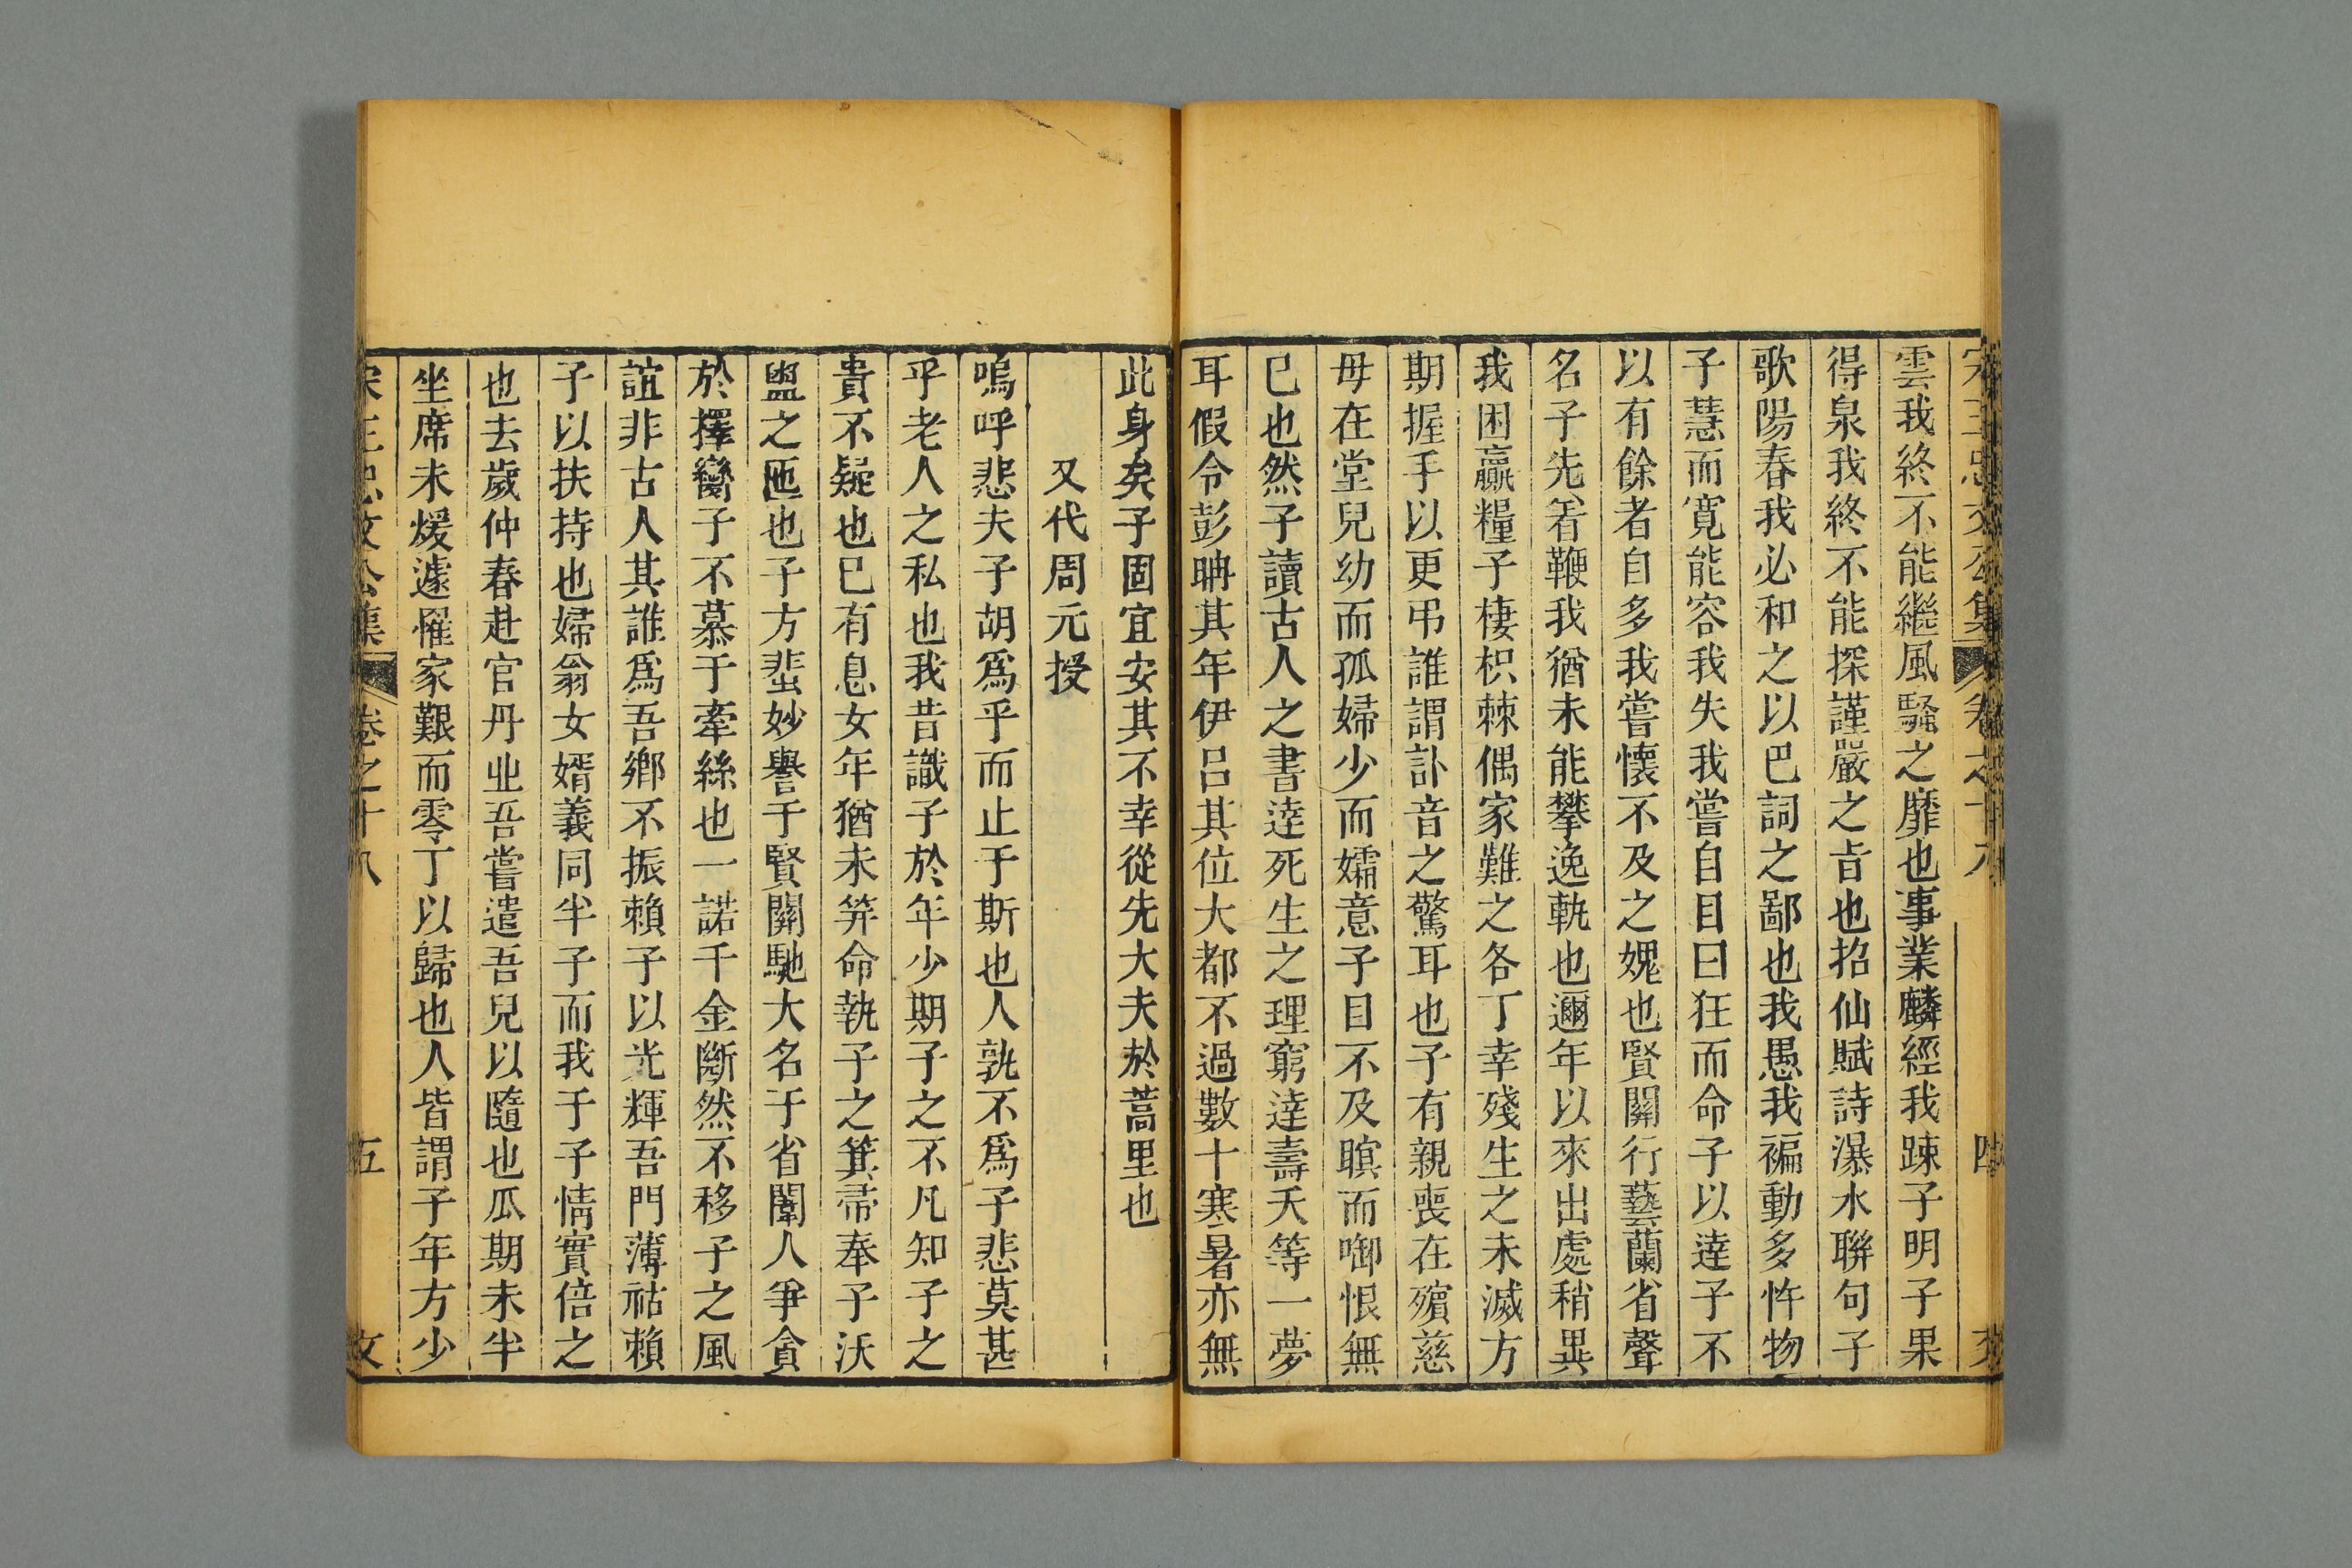 宋王忠文公集 卷之十八 四 文
雲我終不能繼風騷之靡也事業麟經我踈子明子果
得泉我終不能探謹嚴之㫖也招仙賦詩瀑水聯句子
歌陽春我必和之以巴詞之鄙也我愚我褊動多忤物
子慧而寛能容我失我嘗自目曰狂而命子以達子不
以有餘者自多我嘗懷不及之媿也賢關行藝蘭省聲
名子先着鞭我猶未能攀逸軌也邇年以來出處稍異
我困贏糧子棲枳棘偶家難之各丁幸殘生之未滅方
期握手以更弔誰謂訃音之驚耳也子有親喪在殯慈
母在堂兒幼而孤婦少而孀意子目不及瞑而啣恨無
已也然子讀古人之書達死生之理窮達壽夭等一夢
耳假令彭聃其年伊呂其位大都不過數十寒暑亦無
此身矣子固宜安其不幸從先大夫於蒿里也
又代周元授
嗚呼悲夫子胡爲乎而止于斯也人孰不爲子悲莫甚
乎老人之私也我昔識子於年少期子之不凡知子之
貴不疑也已有息女年猶未筓命執子之箕帚奉子沃
盥之匜也子方蜚妙譽于賢關馳大名于省闈人爭貪
於擇臠子不慕于牽絲也一諾千金斷然不移子之風
誼非古人其誰爲吾鄉不振賴子以光輝吾門薄祜賴
子以扶持也婦翁女婿義同半子而我于子情實倍之
也去歲仲春赴官丹丘吾嘗遣吾兒以隨也瓜期未半
坐席未煖遽罹家艱而零丁以歸也人皆謂子年方少
宋王忠文公集 卷之十八 五 文